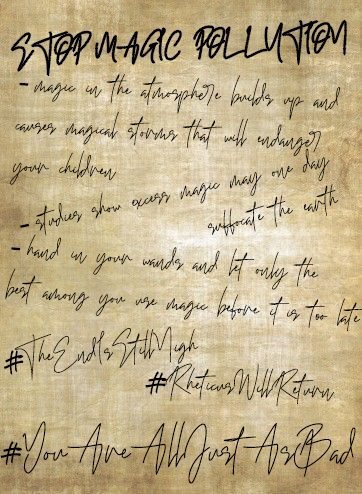 STOP MAGIC POLLUTION
- magic in the atmosphere builds up and
causes magical storms that will endanger
your children
- studies show excess magic may one day
suffocate the earth
- hand in your wands and let only the
best among you use magic before it is too late
#TheEndIsStillNigh
#RheticusWillReturn
#YouAreAllJustAsBad